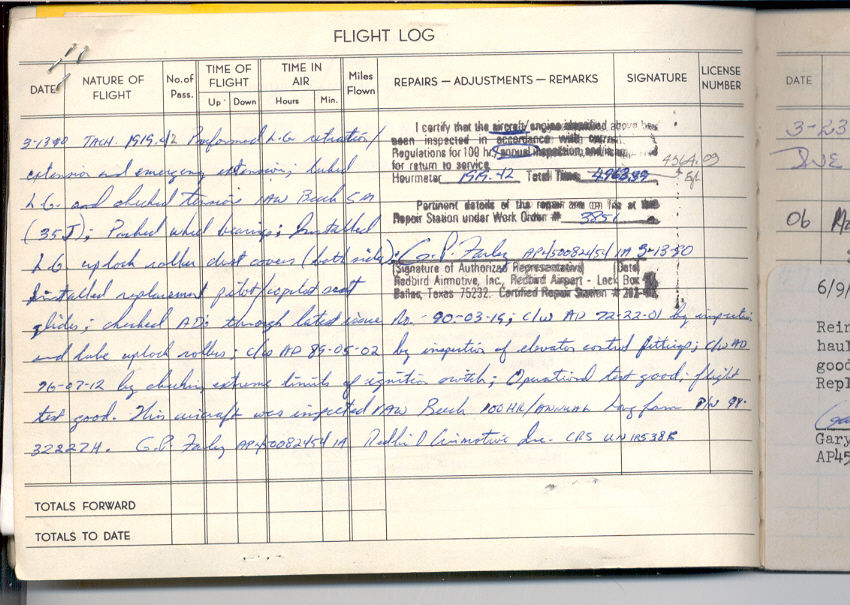 FLIGHT LOG
DATE NATURE OF FLIGHT No. of Pass. TIME OF FLIGHT Up Down TIME IN AIR Hours Min. Miles Flown REPAIRS — ADJUSTMENTS — REMARKS SIGNATURE LICENSE NUMBER
I certify that the aircraft/engine identified above has
been inspected in accordance with current
Regulations for 100 hr/annual inspection, and is
for return to service.
Hourmeter 1519.42 Total Time 4963.99
4964.09
Pertinent details of the repair are on file at this
Repair Station under Work Order # 3851
G.P. Farley AP450082454 IA 3-13-90
(Signature of Authorized Representative) (Date)
Redbird Airmotive, Inc., Redbird Airport - Lock Box
Dallas, Texas 75232. Certified Repair Station #
3-13-90 TACH. 1519.42 Performed L.G. retraction/
extension and emergency extension; lubed
L.G. and checked tension IAW Beech S.M.
(35J); Packed wheel bearings; Installed
L.G. uplock roller dust covers (both sides);
Installed replacement pilot/copilot seat
glides; checked ADs through latest issue No. - 90-03-15; C/W AD 72-22-01 by inspection
and lube uplock rollers; C/W AD 89-05-02 by inspection of elevator control fittings; C/W AD
76-07-12 by checking extreme limits of ignition switch; Operational test good; flight
test good. This aircraft was inspected IAW Beech 100 HR/ANNUAL Long form P/N 98-
32227H. G.P. Farley AP450082454 IA Redbird Airmotive Inc. CRS
TOTALS FORWARD
TOTALS TO DATE
DATE
3-23
06
6/9/
Rein
haul
good
Repl
Gary
AP45